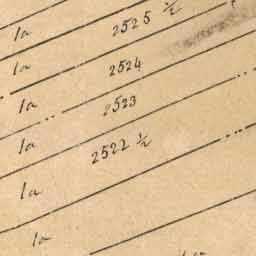 1a 2525 1/2
1a 2524
1a 2523
1a 2522 1/2
1a
1a